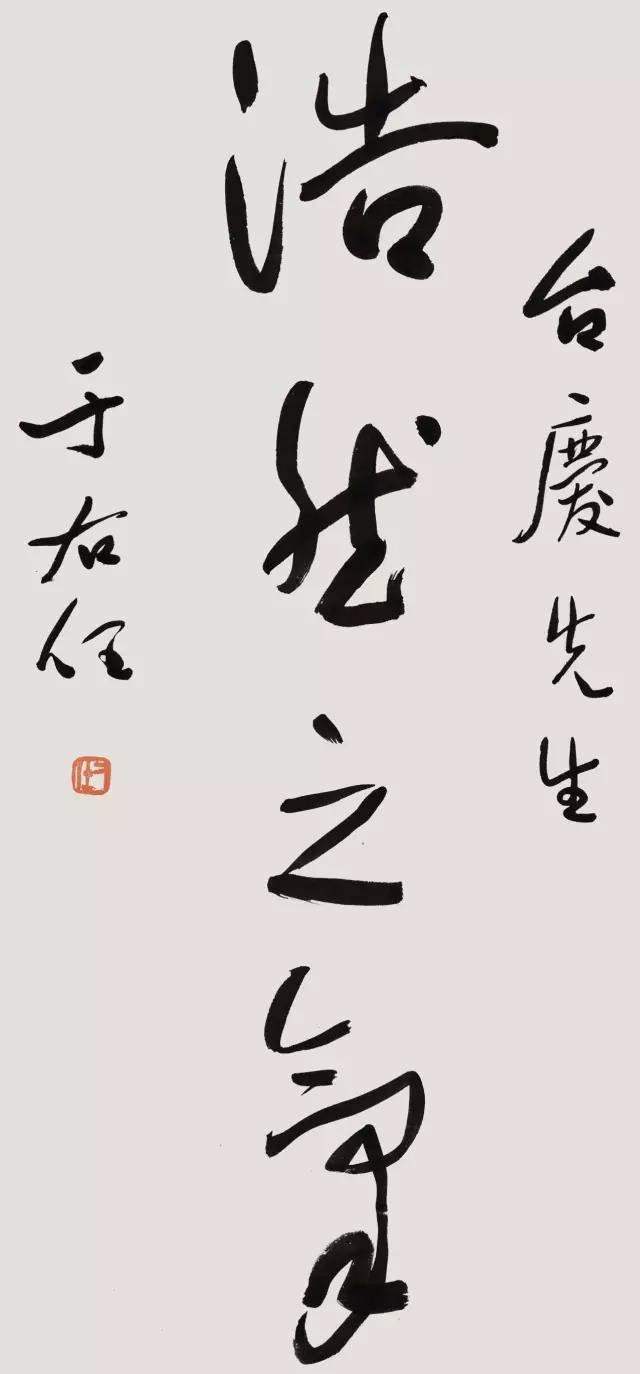 台慶先生
浩然之氣
于右任